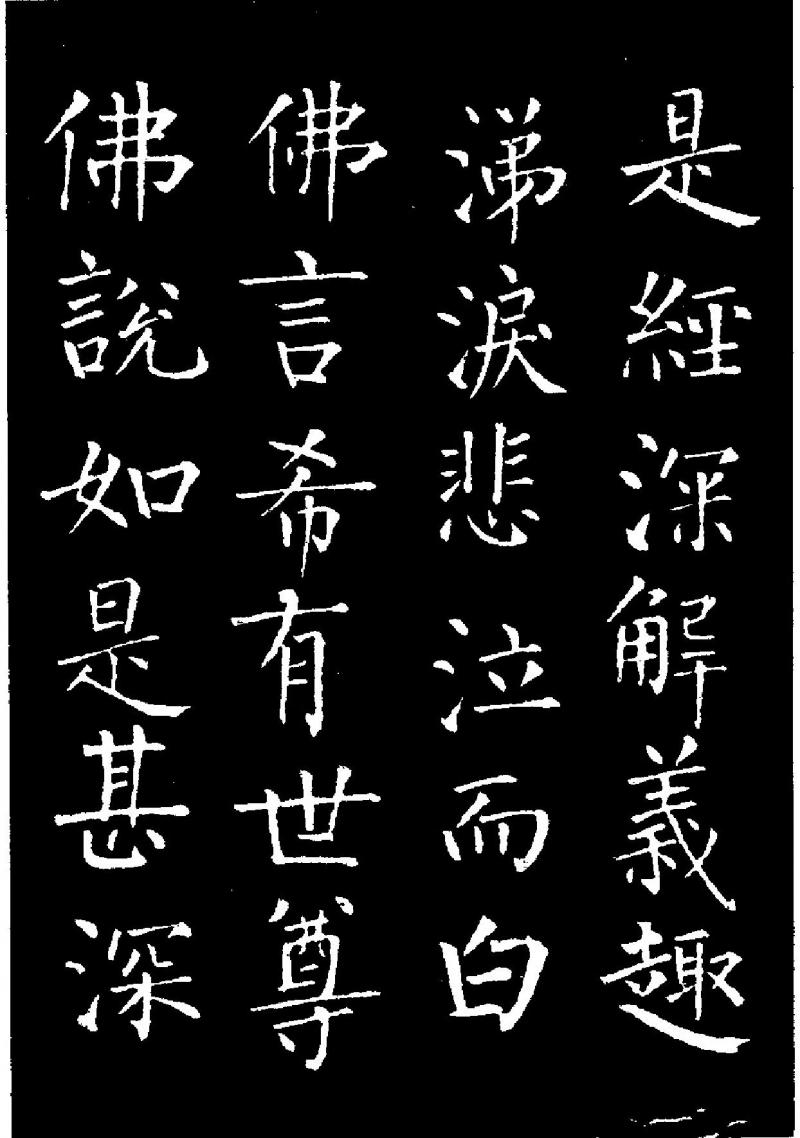 是經深解義趣
涕淚悲泣而白
佛言希有世尊
佛說如是甚深